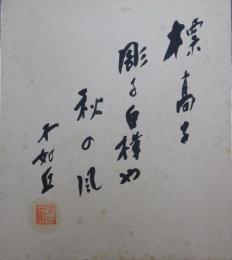 標高を
彫る白樺や
秋の風
不如丘